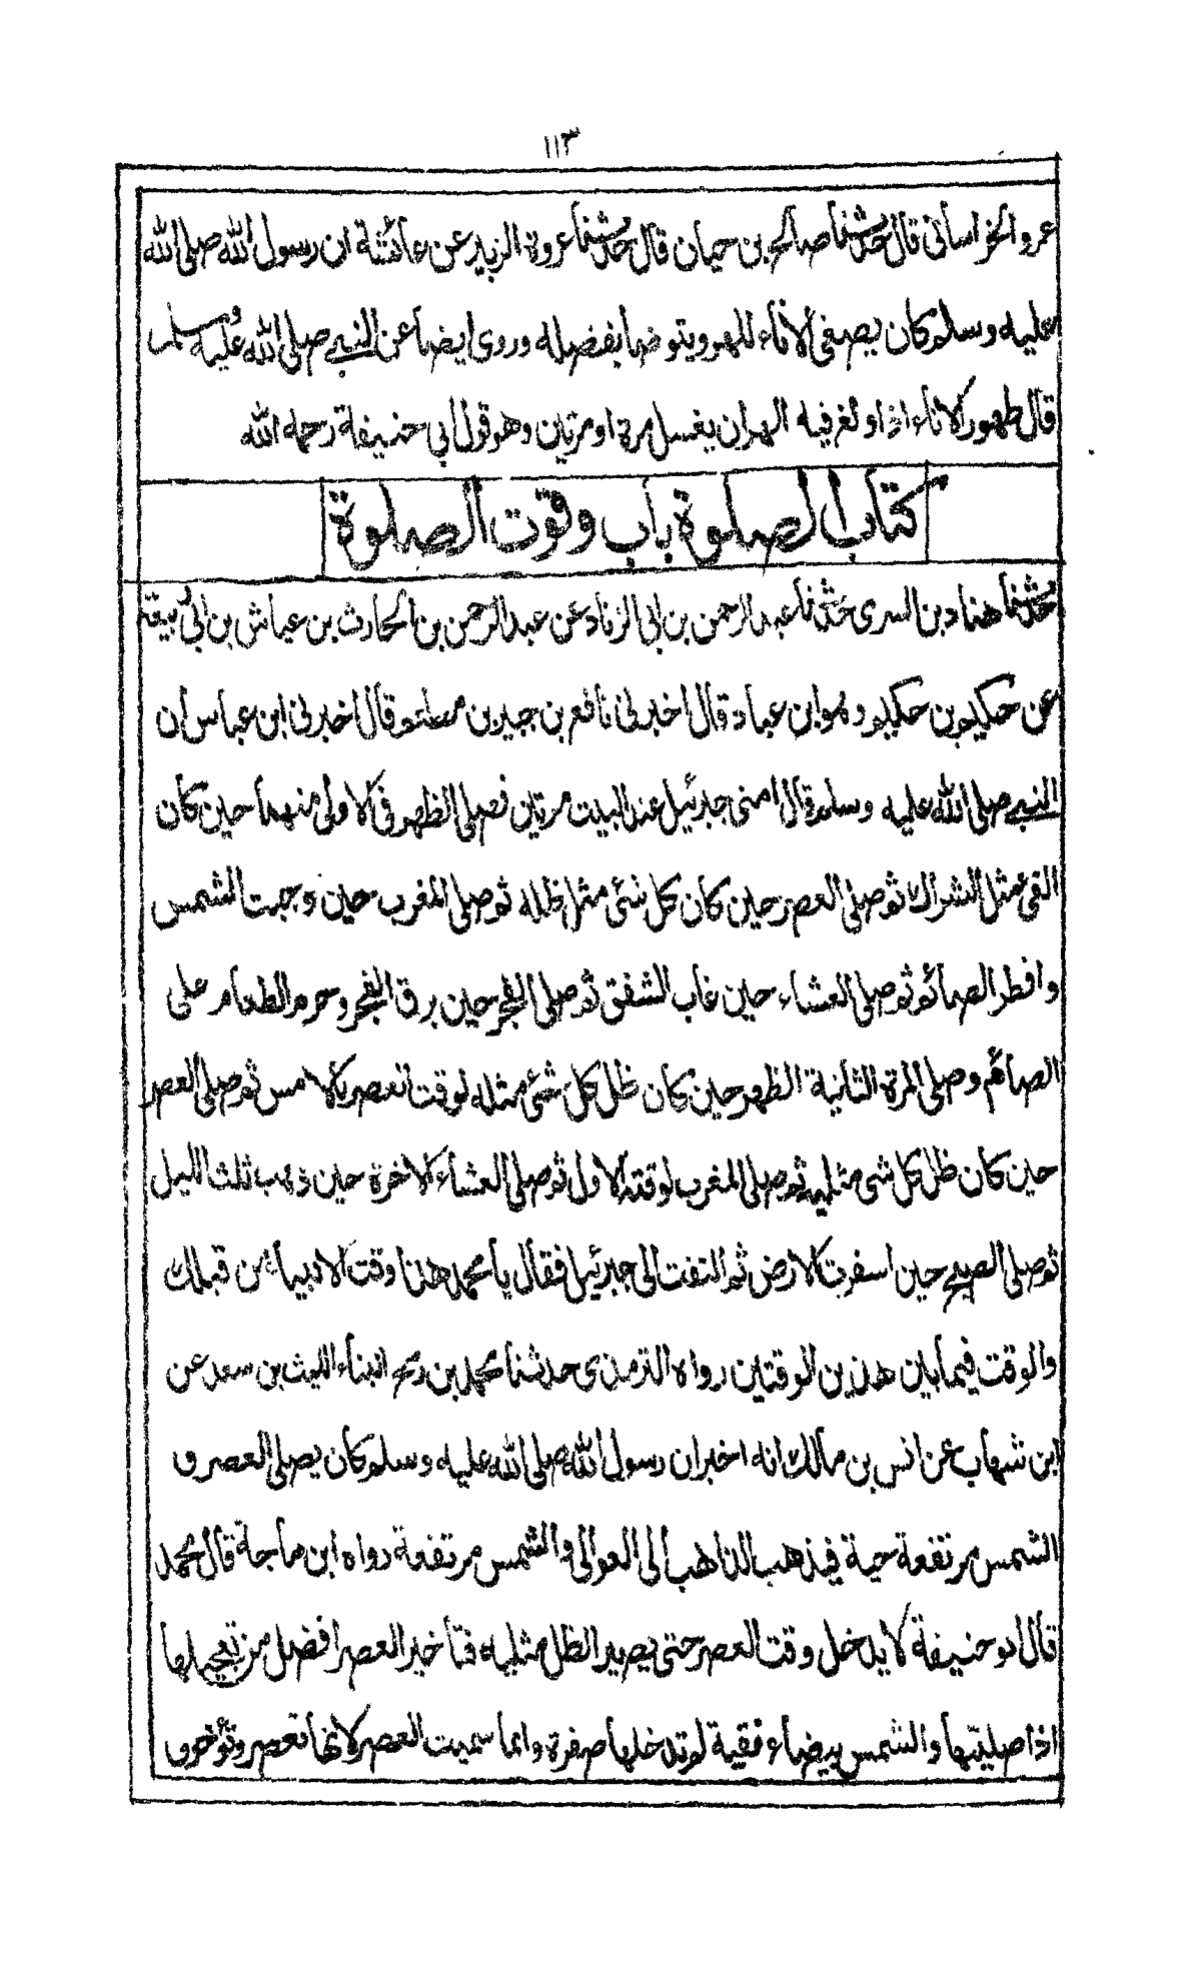 ١١٣
عمرو الخراسانى قال حدثنا صالح بن حيان قال حدثنا عروة الزبير عن عائشة ان رسول الله صلى الله
عليه وسلم كان يصغى الاناء للهر ويتوضأ بفضله وروى ايضا عن النبي صلى الله عليه وسلم
قال طهور الاناء اذا ولغ فيه الهر ان يغسل مرة او مرتين وهو قول ابي حنيفة رحمه الله
كتاب الصلوة باب وقوت الصلوة
حدثنا هناد بن السرى حدثنا عبد الرحمن بن ابى الزناد عن عبد الرحمن بن الحارث بن عياش بن ابى ربيعة
عن حكيم بن حكيم وهو ابن عباد قال اخبرنى نافع بن جبير بن مطعم قال اخبرنى ابن عباس ان
النبي صلى الله عليه وسلم قال امنى جبرئيل عند البيت مرتين فصلى الظهر فى الاولى منهما حين كان
الفئ مثل الشراك ثم صلى العصر حين كان كل شئى مثل ظله ثم صلى المغرب حين وجبت الشمس
وافطر الصائم ثم صلى العشاء حين غاب الشفق ثم صلى الفجر حين برق الفجر وحرم الطعام على
الصائم وصلى المرة الثانية الظهر حين كان ظل كل شئى مثله لوقت العصر بالامس ثم صلى العصر
حين كان ظل كل شى مثليه ثم صلى المغرب لوقته الاول ثم صلى العشاء الاخرة حين ذهب ثلث الليل
ثم صلى الصبح حين اسفرت الارض ثم التفت الى جبرئيل فقال يا محمد هذا وقت الانبياء من قبلك
والوقت فيما بين هذين الوقتين رواه الترمذى حدثنا محمد بن رمح انبناء الليث بن سعد عن
ابن شهاب عن انس بن مالك انه اخبر ان رسول الله صلى الله عليه وسلم كان يصلى العصر و
الشمس مرتفعة حية فيذهب الذاهب الى العوالى والشمس مرتفعة رواه ابن ماجة قال محمد
قال ابو حنيفة لا يدخل وقت العصر حتى يصير الظل مثليه فتأخير العصر افضل من تعجيلها
اذا صليتها والشمس بيضاء فقية لم تدخلها صفرة وانما سميت العصر لانها تعصر وتؤخر و